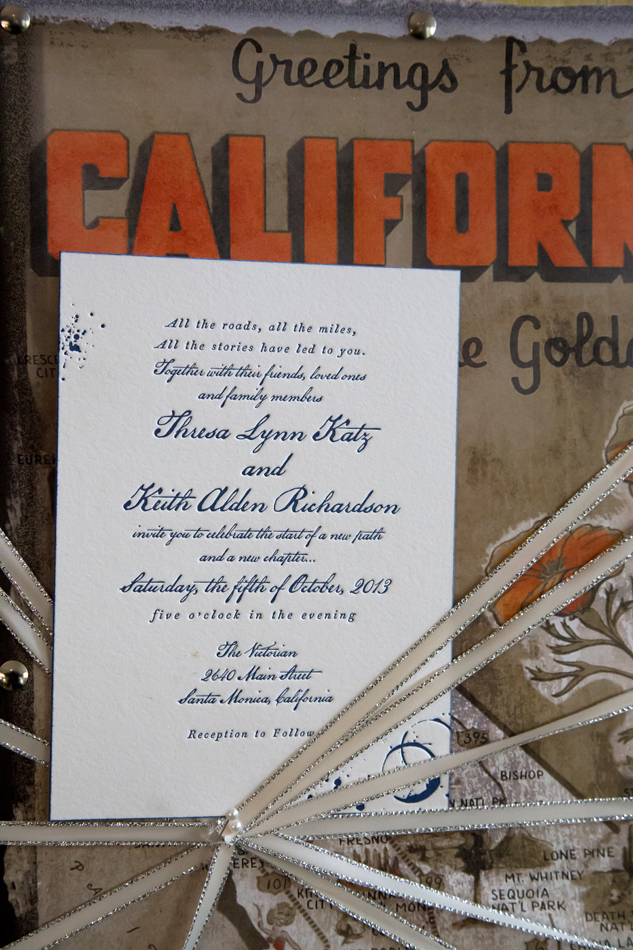 Greetings from
CALIFORN
e Golde
CRESC
CITY
EUREK
All the roads, all the miles,
All the stories have led to you.
Together with their friends, loved ones
and family members
Thresa Lynn Katz
and
Keith Alden Richardson
invite you to celebrate the start of a new path
and a new chapter...
Saturday, the fifth of October, 2013
five o'clock in the evening
The Victorian
2640 Main Street
Santa Monica, California
Reception to Follow
395
BISHOP
NAT'L PK.
FRESNO
LONE PINE
99
MT. WHITNEY
101
SEQUOIA
NAT'L PARK
DEATH